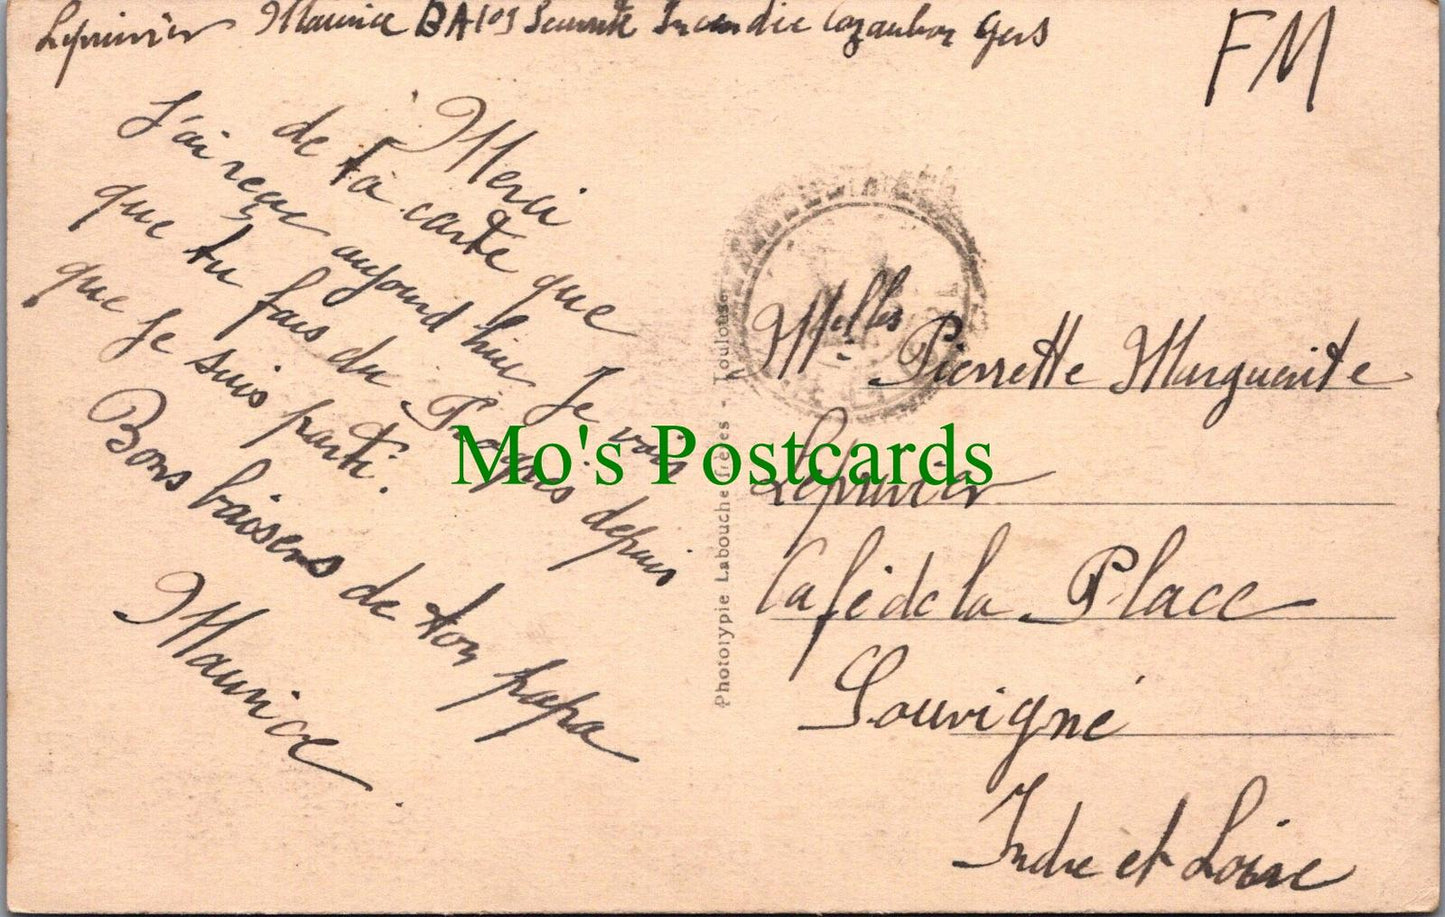 Leprivier Maurice BA 109 Securité Incendie Cazaubon Gers
FM
Merci
de ta carte que
J'ai reçue aujourd hui Je vois
que tu fais du Progrès depuis
que Je suis parti.
Bons baisers de ton papa
Maurice
Phototypie Labouche frères - Toulouse
Melles Pierrette Marguerite
Leprivier
Café de la Place
Souvigné
Indre et Loire
Mo's Postcards